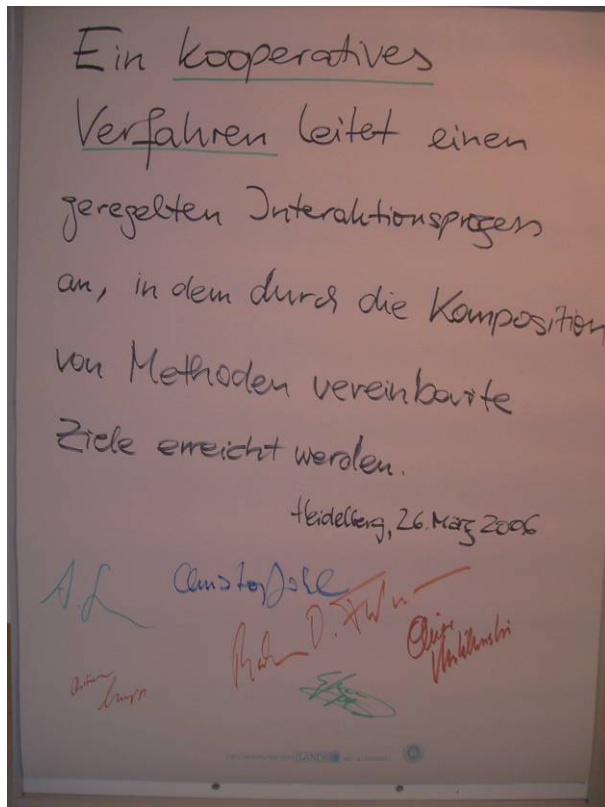 Ein kooperatives
Verfahren leitet einen
geregelten Interaktionsprozess
an, in dem durch die Komposition
von Methoden vereinbarte
Ziele erreicht werden.
Heidelberg, 26. März 2006
LANDR